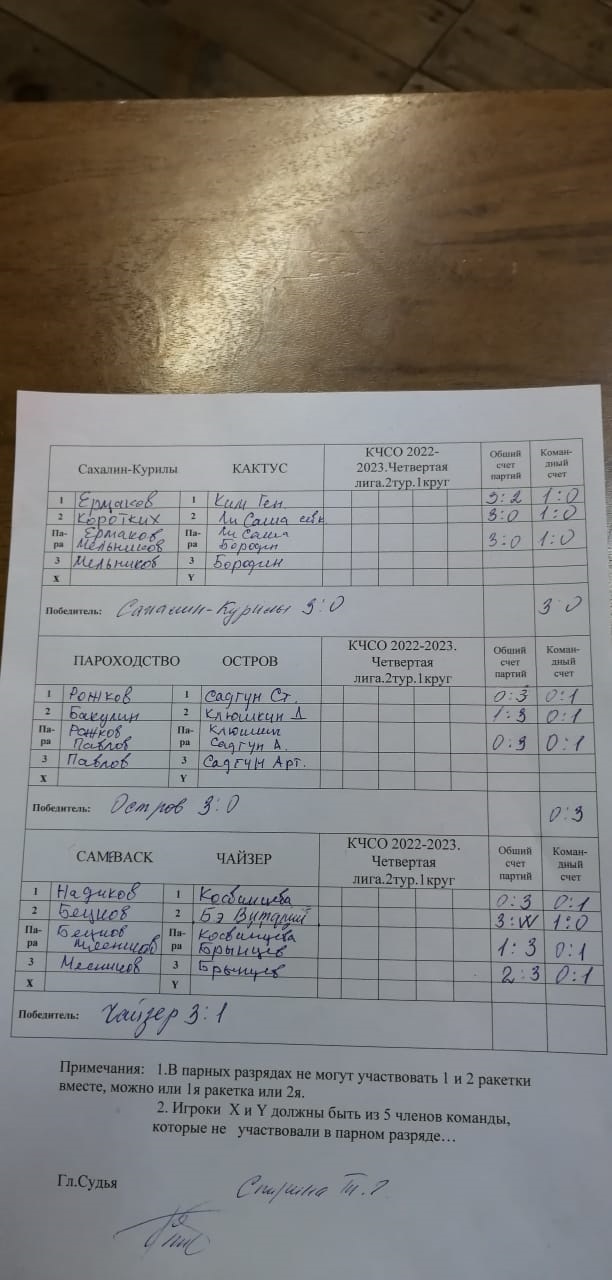 Сахалин-Курилы КАКТУС КЧСО 2022-2023.Четвертая лига.2тур.1круг Общий счет партий Коман-дный счет
1 Ермаков 1 Ким Ген. 3:2 1:0
2 Коротких 2 Ли Саша 3:0 1:0
Па-ра Ермаков Мельников Па-ра Ли Саша Бородин 3:0 1:0
3 Мельников 3 Бородин
X Y
Победитель: Сахалин-Курилы 3:0 3:0
ПАРОХОДСТВО ОСТРОВ КЧСО 2022-2023. Четвертая лига.2тур.1круг Общий счет партий Коман-дный счет
1 Рожков 1 Садгун Ст. 0:3 0:1
2 Бакулин 2 Клюшкин Д 1:3 0:1
Па-ра Рожков Павлов Па-ра Садгун А. 0:3 0:1
3 Павлов 3 Садгун Арт.
X Y
Победитель: Остров 3:0 0:3
CAMEBACK ЧАЙЗЕР КЧСО 2022-2023. Четвертая лига.2тур.1круг Общий счет партий Коман-дный счет
1 Надиков 1 Косвинцева 0:3 0:1
2 Бецков 2 Бэ Виталий 3:W 1:0
Па-ра Бецков Па-ра Косвинцева Брынцев 1:3 0:1
3 3 Брынцев 2:3 0:1
X Y
Победитель: Чайзер 3:1
Примечания: 1.В парных разрядах не могут участвовать 1 и 2 ракетки
вместе, можно или 1я ракетка или 2я.
2. Игроки X и Y должны быть из 5 членов команды,
которые не участвовали в парном разряде…
Гл.Судья